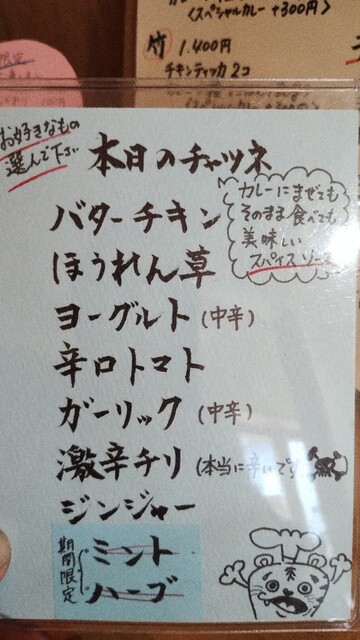 〈スペシャルカレー+300円〉
竹 1.400円
チキンティッカ2コ
お好きなもの
選んで下さい
本日のチャツネ
カレーにまぜても
そのまま食べても
美味しい
スパイスソース
バターチキン
ほうれん草
ヨーグルト(中辛)
辛口トマト
ガーリック(中辛)
激辛チリ(本当に辛いです
ジンジャー
期間限定
ミント
ハーブ